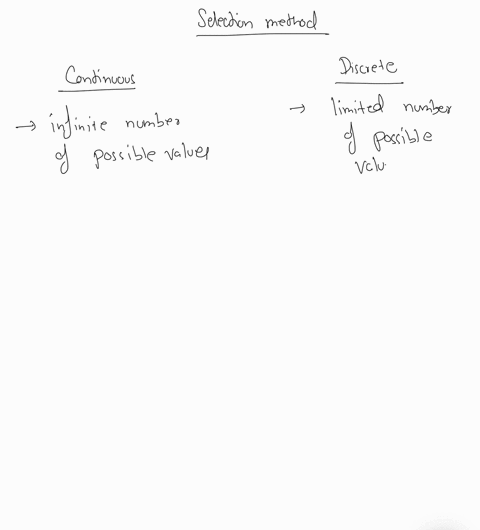 Selection method
Continuous
→ infinite number
of possible values
Discrete
→ limited number
of possible
valu